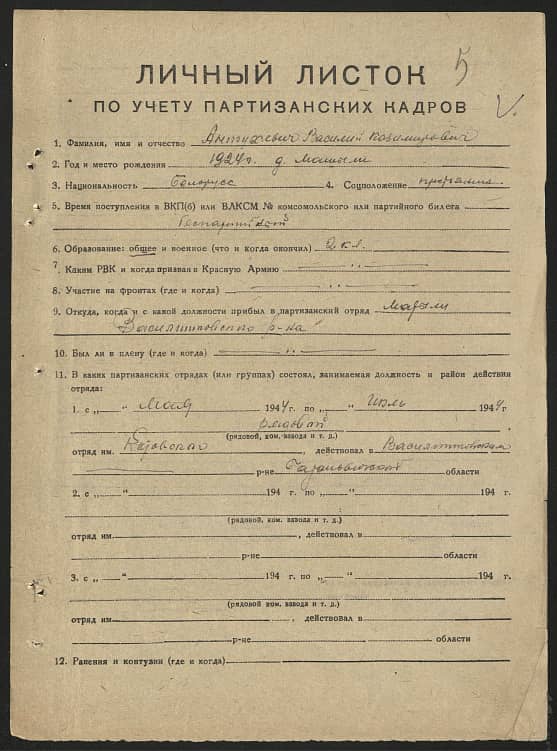 5
ЛИЧНЫЙ ЛИСТОК
ПО УЧЕТУ ПАРТИЗАНСКИХ КАДРОВ
V.
1. Фамилия, имя и отчество Василий Казимирович
2. Год и место рождения 1924 г. д.
3. Национальность белорусс 4. Соцположение
5. Время поступления в ВКП(б) или ВЛКСМ № комсомольского или партийного билета
беспартийный
6. Образование: общее и военное (что и когда окончил) 2 кл.
7. Каким РВК и когда призван в Красную Армию — „ —
8. Участие на фронтах (где и когда) — „ —
9. Откуда, когда и с какой должности прибыл в партизанский отряд
Василишковского р-на
10. Был ли в плену (где и когда) — „ —
11. В каких партизанских отрядах (или группах) состоял, занимаемая должность и район действия
отряда:
1. с „ “ Мая 1944 г. по „ “ Июль 1944 г.
рядовой
(рядовой, ком. взвода и т. д.)
отряд им. , действовал в Василишковском
р-не области
2. с „ “ 194 г. по „ “ 194 г.
(рядовой, ком. взвода и т. д.)
отряд им. , действовал в
р-не области
3. с „ “ 194 г. по „ “ 194 г.
(рядовой, ком. взвода и т. д.)
отряд им. , действовал в
р-не области
12. Ранения и контузии (где и когда)